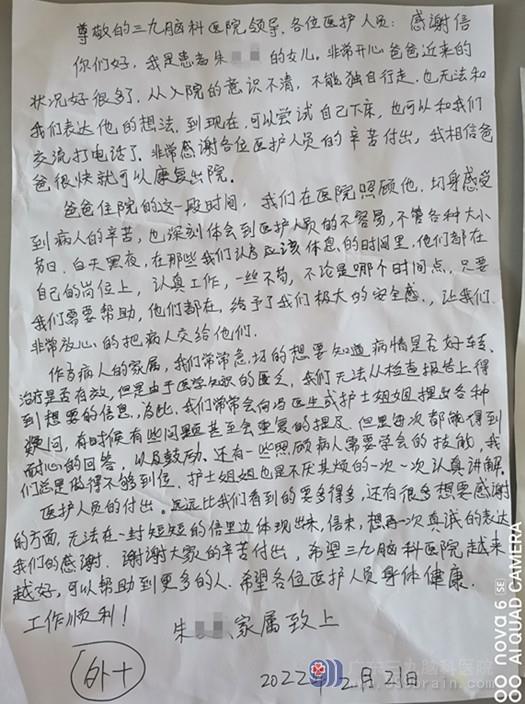 尊敬的三九脑科医院领导、各位医护人员: 感谢信
你们好,我是患者朱 的女儿。非常开心爸爸近来的
状况好很多了,从入院的意识不清,不能独自行走,也无法和
我们表达他的想法,到现在,可以尝试自己下床,也可以和我们
交流打电话了,非常感谢各位医护人员的辛苦付出,我相信爸
爸很快就可以康复出院。
爸爸住院的这一段时间,我们在医院照顾他,切身感受
到病人的辛苦,也深刻体会到医护人员的不容易,不管各种大小
节日,白天黑夜,在那些我们认为应该休息的时间里,他们都在
自己的岗位上,认真工作,一丝不苟,不论是哪个时间点,只要
我们需要帮助,他们都在,给予了我们极大的安全感,让我们
非常放心的把病人交给他们.
作为病人的家属,我们常常急切的想要知道病情是否好转、
治疗是否有效,但是由于医学知识的匮乏,我们无法从检查报告上得
到想要的信息,为此,我们常常会向冯医生或护士姐姐提出各种
疑问,有时候有些问题甚至会重复的提及,但是每次都能得到
耐心的回答,以及鼓励、还有一些照顾病人需要学会的技能,我
们总是做得不够到位,护士姐姐也是不厌其烦的一次一次认真讲解.
医护人员的付出,远远比我们看到的要多得多,还有很多想要感谢
的方面,无法在一封短短的信里边体现出来,信末,想再一次真诚的表达
我们的感谢,谢谢大家的辛苦付出,希望三九脑科医院越来
越好,可以帮助到更多的人,希望各位医护人员身体健康,
工作顺利!
朱 家属致上
外十
2022年2月21日
广东三九脑科医院
www.999brain.com
nova 6 SE
AI QUAD CAMERA